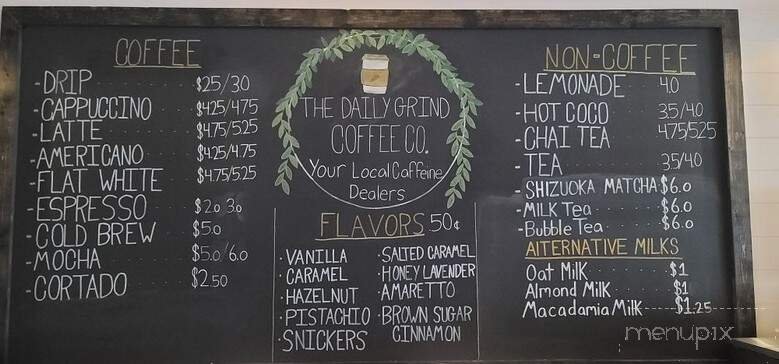 COFFEE
-DRIP $25/30
-CAPPUCCINO $4.25/4.75
-LATTE $4.75/5.25
-AMERICANO $4.25/4.75
-FLAT WHITE $4.75/5.25
-ESPRESSO $2.0 3.0
-COLD BREW $5.0
-MOCHA $5.0/6.0
-CORTADO $2.50
THE DAILY GRIND
COFFEE CO.
Your Local Caffeine
Dealers
FLAVORS 50¢
·VANILLA
·CARAMEL
·HAZELNUT
·PISTACHIO
·SNICKERS
·SALTED CARAMEL
·HONEY LAVENDER
·AMARETTO
·BROWN SUGAR
CINNAMON
NON-COFFEE
-LEMONADE 4.0
-HOT COCO 35/4.0
-CHAI TEA 4.75/5.25
-TEA 3.5/4.0
-SHIZUOKA MATCHA $6.0
-MILK Tea $6.0
-Bubble Tea $6.0
ALTERNATIVE MILKS
Oat Milk $1
Almond Milk $1
Macadamia Milk $1.25
menupix